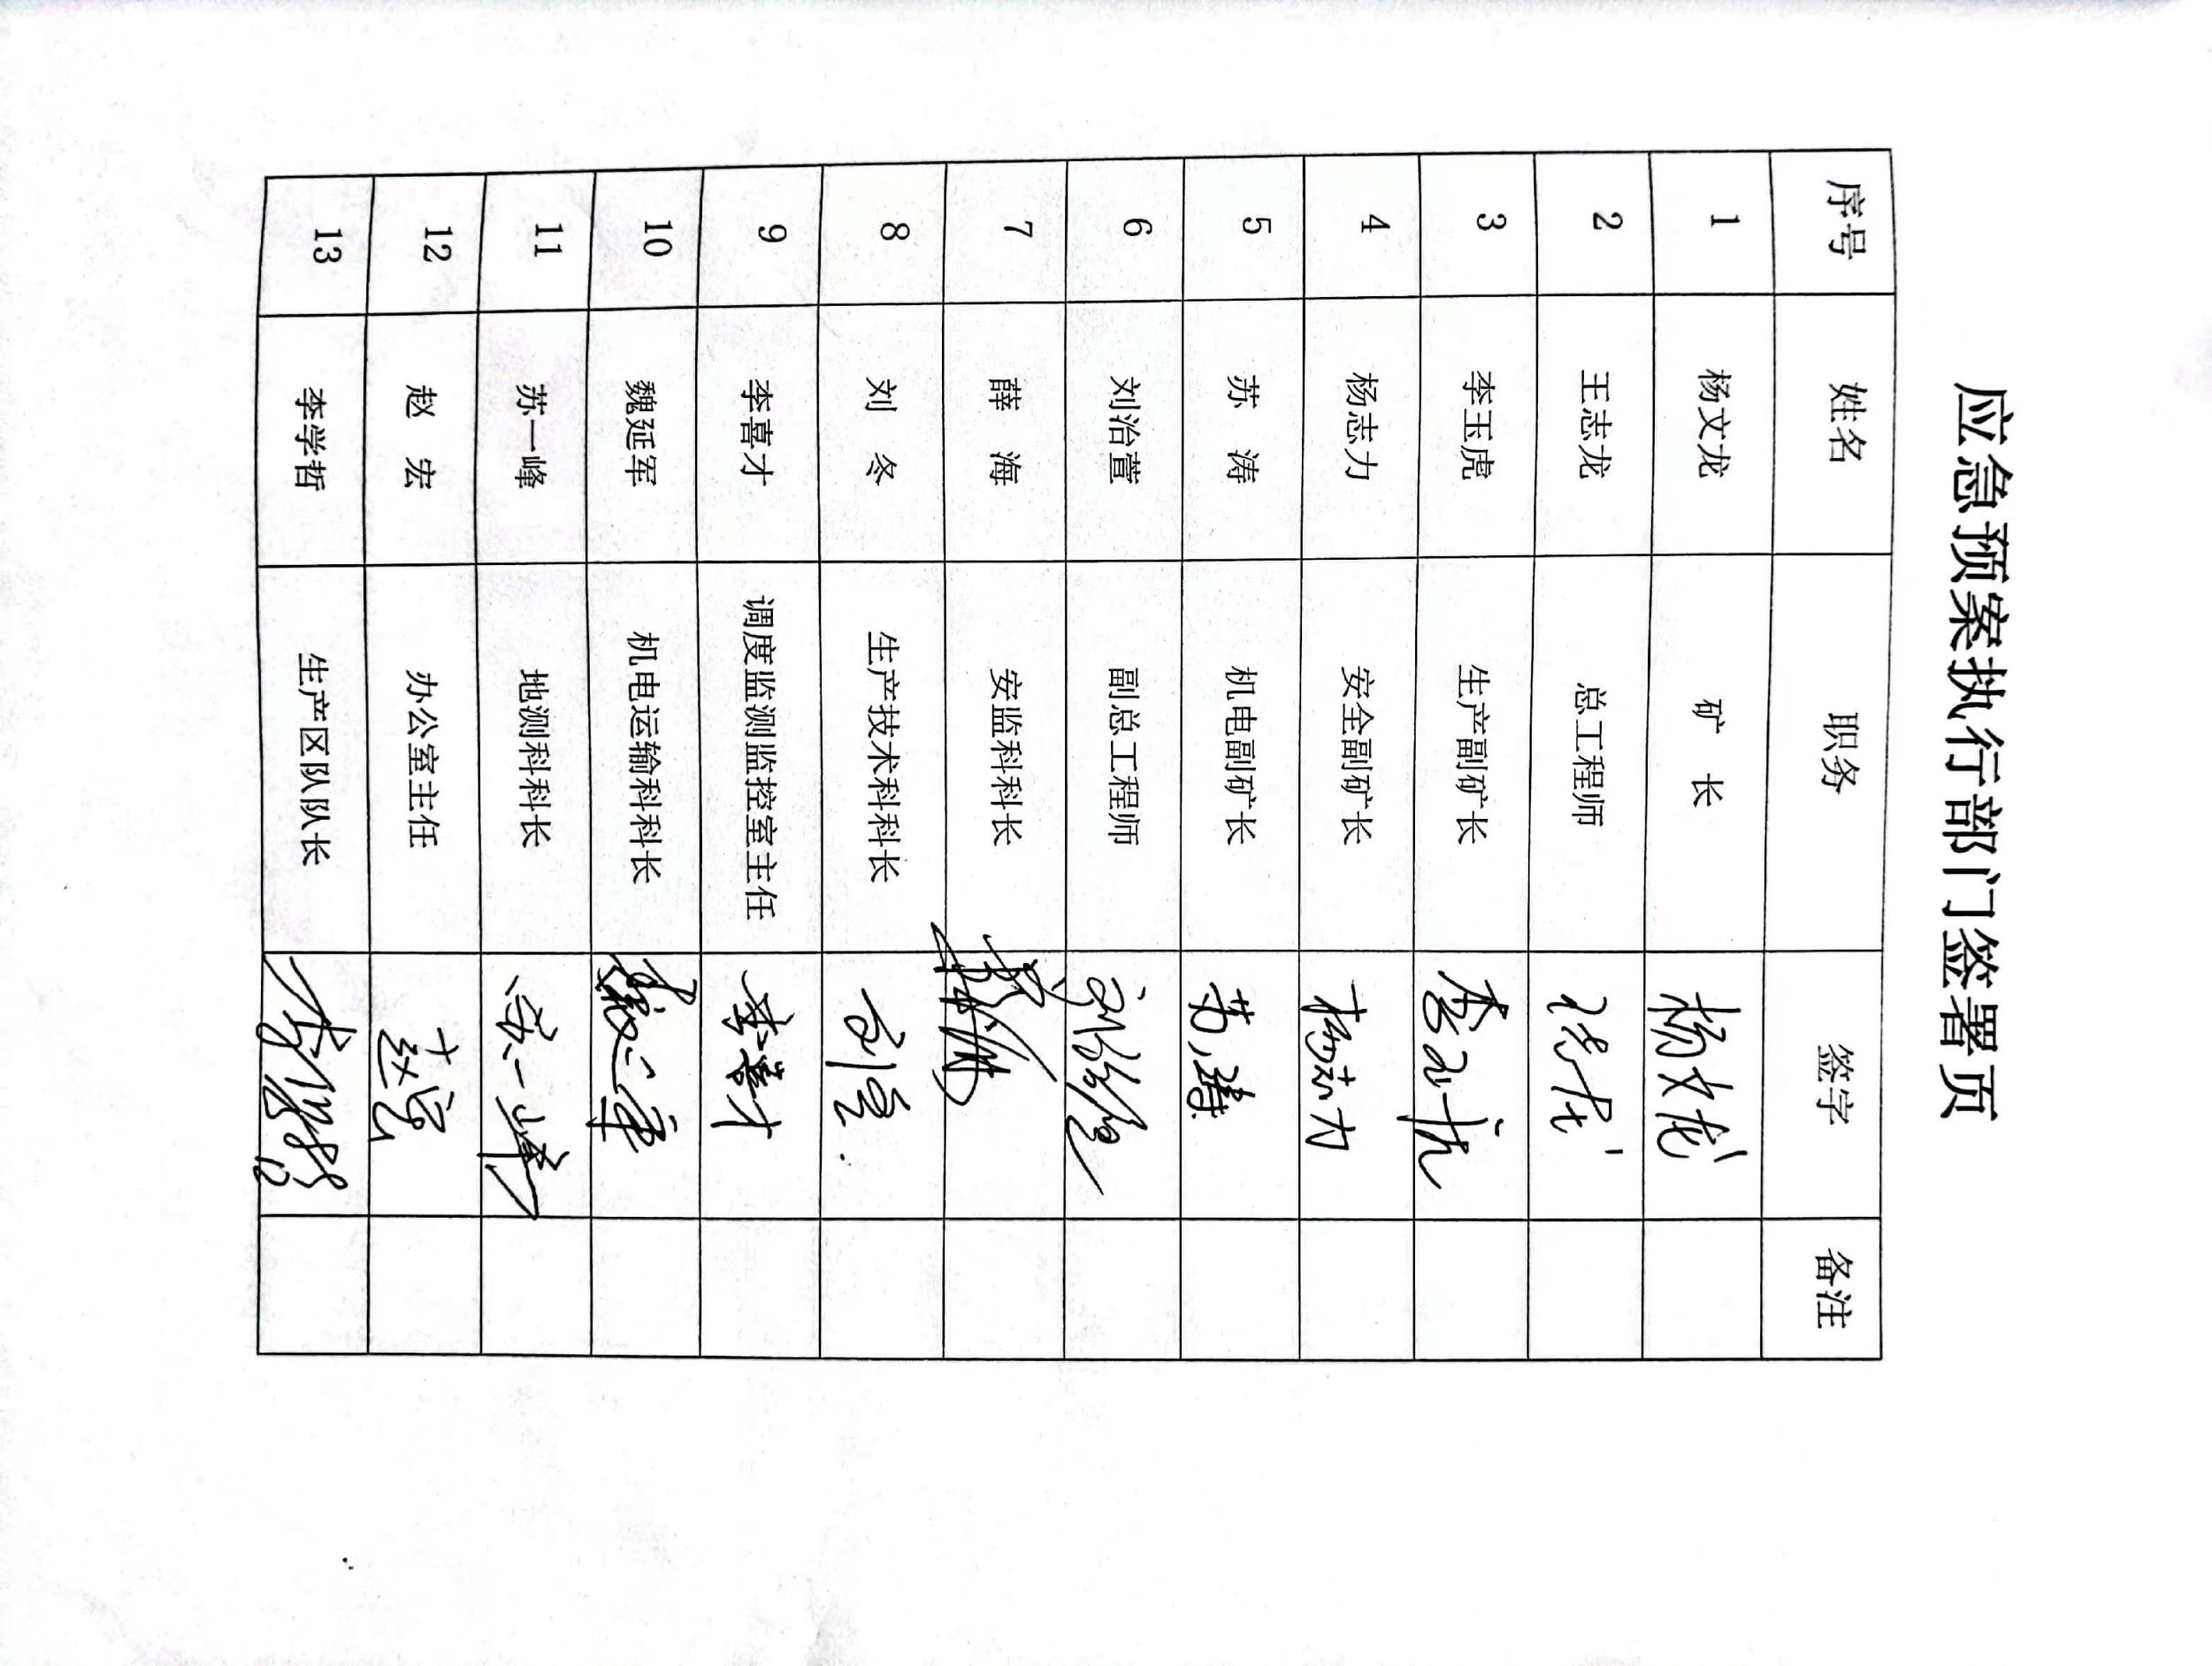 应急预案执行部门签署页
序号 姓名 职务 签字 备注
1 杨文龙 矿 长 杨文龙
2 王志龙 总工程师
3 李玉虎 生产副矿长 李玉虎
4 杨志力 安全副矿长 杨志力
5 苏 涛 机电副矿长 苏涛
6 刘治萱 副总工程师
7 薛 海 安监科科长
8 刘 冬 生产技术科科长
9 李喜才 调度监测监控室主任 李喜才
10 魏延军 机电运输科科长
11 苏一峰 地测科科长 苏一峰
12 赵 宏 办公室主任 赵宏
13 李学哲 生产区队队长